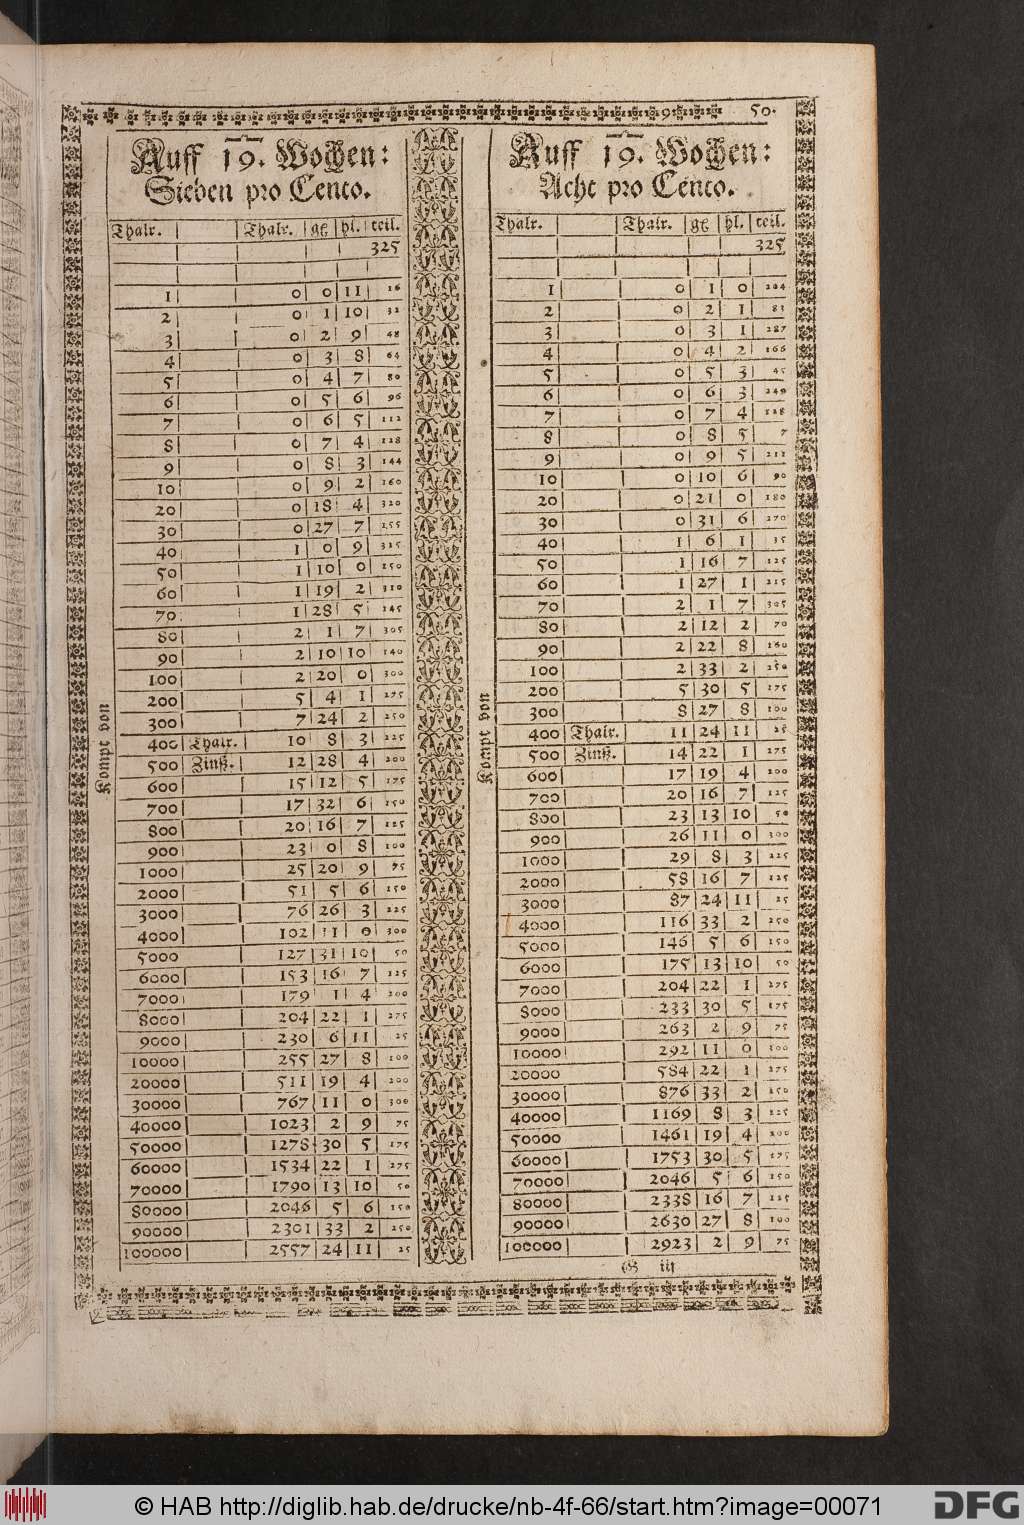 50.
Auff 19. Wochen:
Sieben pro Cento.
Thalr. Thalr. gß hl. teil.
325
1 0 0 11 16
2 0 1 10 32
3 0 2 9 48
4 0 3 8 64
5 0 4 7 80
6 0 5 6 96
7 0 6 5 112
8 0 7 4 128
9 0 8 3 144
10 0 9 2 160
20 0 18 4 320
30 0 27 7 155
40 1 0 9 315
50 1 10 0 150
60 1 19 2 310
70 1 28 5 145
80 2 1 7 305
90 2 10 10 140
100 2 20 0 300
200 5 4 1 275
300 7 24 2 250
Kompt von
400 Thalr. 10 8 3 225
500 Zinß. 12 28 4 200
600 15 12 5 175
700 17 32 6 150
800 20 16 7 125
900 23 0 8 100
1000 25 20 9 75
2000 51 5 6 150
3000 76 26 3 225
4000 102 11 0 300
5000 127 31 10 50
6000 153 16 7 125
7000 179 1 4 200
8000 204 22 1 275
9000 230 6 11 25
10000 255 27 8 100
20000 511 19 4 200
30000 767 11 0 300
40000 1023 2 9 75
50000 1278 30 5 175
60000 1534 22 1 275
70000 1790 13 10 50
80000 2046 5 6 150
90000 2301 33 2 250
100000 2557 24 11 25
Auff 19. Wochen:
Acht pro Cento.
Thalr. Thalr. gß hl. teil.
325
1 0 1 0 204
2 0 2 1 83
3 0 3 1 287
4 0 4 2 166
5 0 5 3 45
6 0 6 3 249
7 0 7 4 128
8 0 8 5 7
9 0 9 5 211
10 0 10 6 90
20 0 21 0 180
30 0 31 6 270
40 1 6 1 35
50 1 16 7 125
60 1 27 1 215
70 2 1 7 305
80 2 12 2 70
90 2 22 8 160
100 2 33 2 250
200 5 30 5 175
300 8 27 8 100
Kompt von
400 Thalr. 11 24 11 25
500 Zinß. 14 22 1 275
600 17 19 4 200
700 20 16 7 125
800 23 13 10 50
900 26 11 0 300
1000 29 8 3 225
2000 58 16 7 125
3000 87 24 11 25
4000 116 33 2 250
5000 146 5 6 150
6000 175 13 10 50
7000 204 22 1 275
8000 233 30 5 175
9000 263 2 9 75
10000 292 11 0 300
20000 584 22 1 275
30000 876 33 2 250
40000 1169 8 3 225
50000 1461 19 4 200
60000 1753 30 5 175
70000 2046 5 6 150
80000 2338 16 7 125
90000 2630 27 8 100
100000 2923 2 9 75
G iij
© HAB http://diglib.hab.de/drucke/nb-4f-66/start.htm?image=00071
DFG